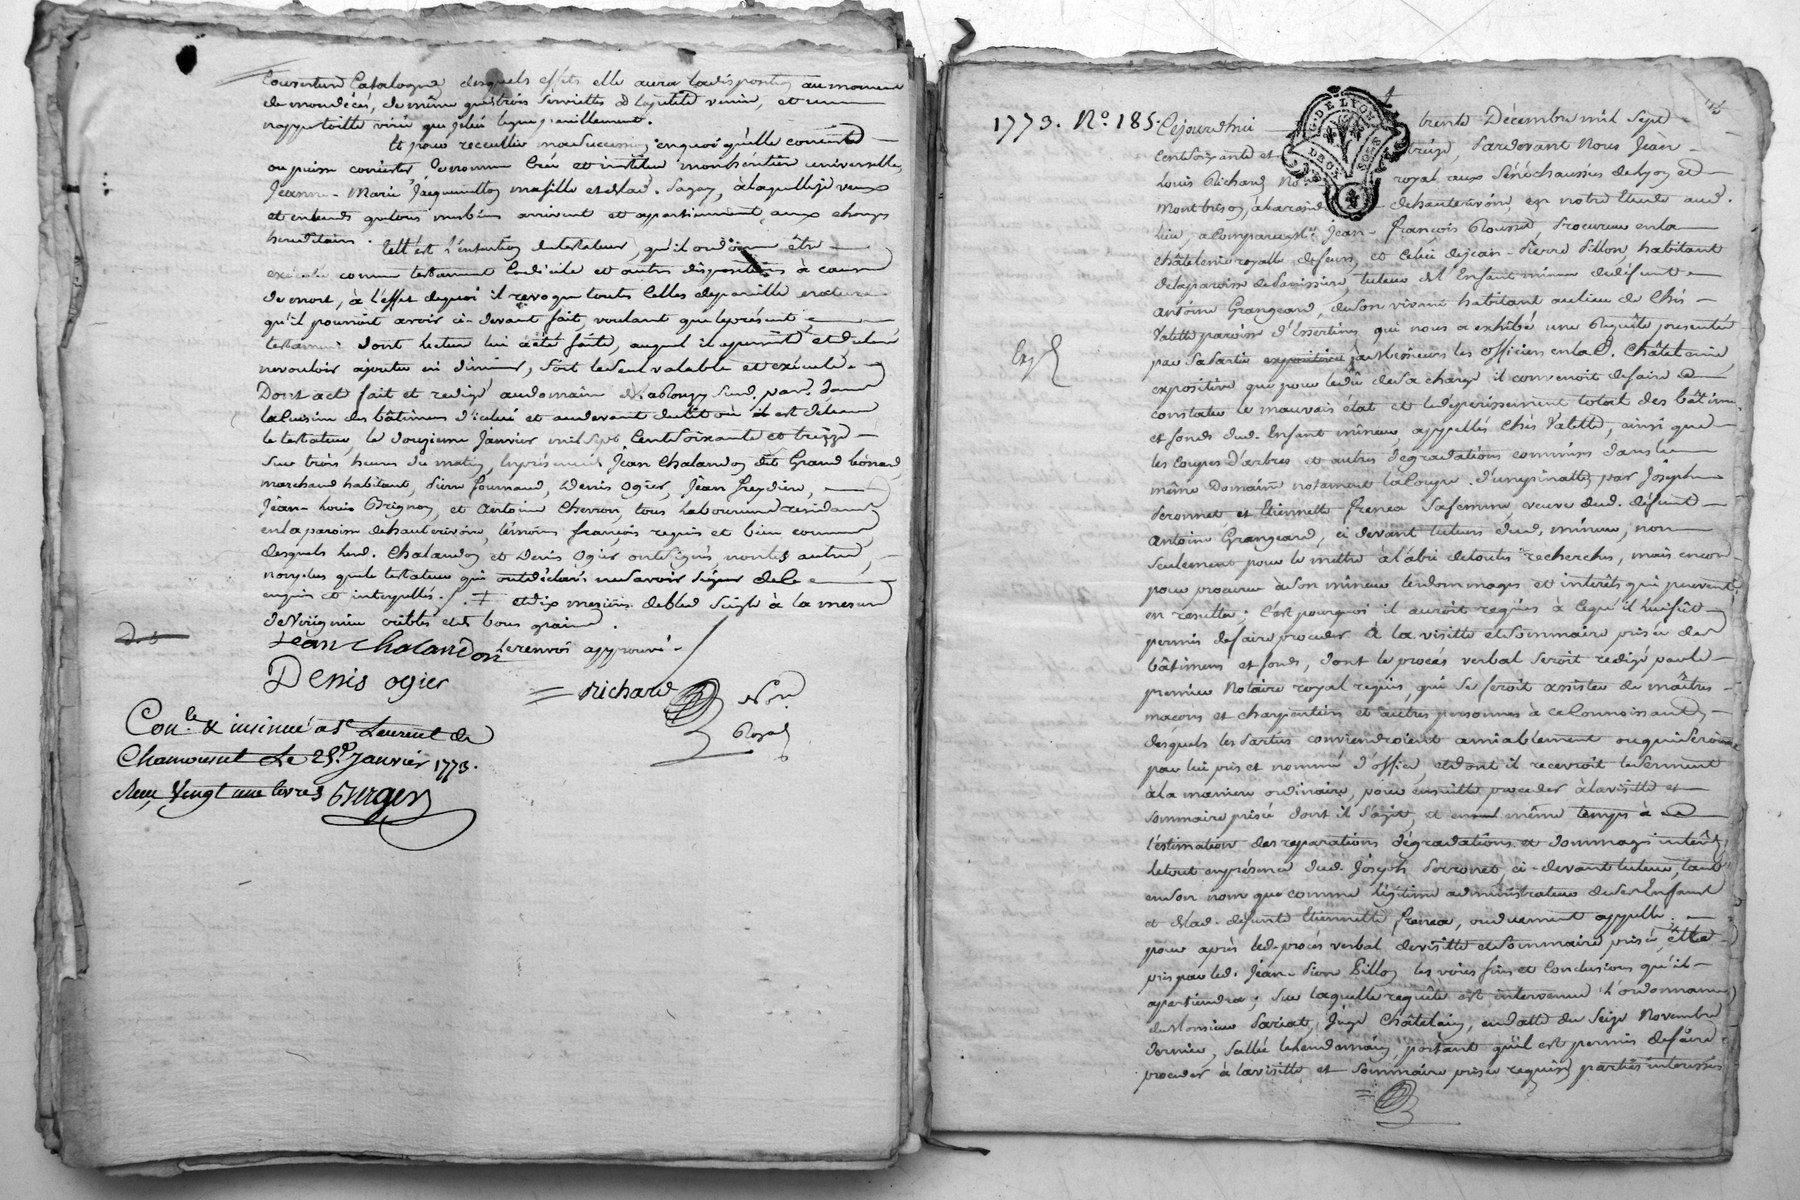 Couverture Catalogne desquels effets elle aura la disposition au moment
de mon décés, de même que trois serviettes et la petite, et une
nappe toille
et pour recueillir ma succession en quoi qu'elle consiste
ou puisse consister Je nomme Crée et institue mon heritiere universelle,
Jeanne-Marie Jacquemillon ma fille et de lad. Sagay, à laquelle je veux
et entends que tous mes biens arrivent et appartiennent, aux charges
hereditaires. telle est l'intention du testateur, qu'il ordonne être
executée comme testament Codicile et autres dispositions à cause
de mort, à l'effet de quoi il revoque toutes Celles de pareille nature
qu'il pourroit avoir ci-devant fait, voulant que le présent
testament dont lecture lui a été faite, auquel il a persisté et declaré
ne vouloir ajouter ni diminuer, soit le seul valable et exécuté.
Dont acte fait et redigé au domaine susd. par. dans
la cuisine des bâtimens d'icelui et au devant du lit où il est detenu
le testateur, le douzieme Janvier mil sept Cent soixante et treize
sur trois heures du matin, en présence Jean Chalandon dit Grand Léonard
marchand habitant, Pierre Fournand, Denis Ogier, Jean Freydiere,
Jean-Louis Brignon, et Antoine Cherron, tous Laboureurs residans
en la paroisse de hauterivoire, témoins françois requis et bien connus,
desquels led. Chalandon et Denis Ogier ont signé, non les autres,
non plus que le testateur qui ont déclaré ne savoir signer de ce
enquis et interpellés. /. ‡ et dix mesures de bled seigle à la mesure
de criblé et de bon grain.
Jean Chalandon le renvoi approuvé.
Denis ogier
Richard Nore.
Royal
Con.le & insinué a St Laurent de
Chamousset Le 25e Janvier 1773.
Reçu Vingt une livres Berger
1773. No. 185. Cejourdhui trente Décembre mil sept
G. DE LYON
DEUX SOLS
Cent soixante et treize, Pardevant Nous Jean-
Louis Richard Nore royal aux Sénéchaussées de Lyon et
Montbrison, à la résidence de hauterivoire, en notre Etude aud.
lieu, a comparu Me. Jean-François Rousset, Procureur en la
châtelenie royalle de feurs, et Celui de Jean-Pierre Pillon habitant
de la paroisse de, tuteur de l'Enfant mineur du défunt
Antoine Grangeard, de son vivant habitant au lieu de Chés-
Valette paroisse d'Essertines, qui nous a exhibé une Requête presentée
par sa partie expositive à Messieurs les Officiers en lad. Châtelenie
expositive que pour le dû de sa charge il convenoit de faire
constater le mauvais état et le dépérissement total des bâtimens
et fonds dud. Enfant mineur, appellés Chés Valette, ainsi que
les Coupes d'arbres et autres dégradations commises dans le
même Domaine notament la Coupe d'une pinatte, par Joseph
Peronnet et Etiennette Frenea sa femme, veuve dud. défunt
Antoine Grangeard, ci devant tuteurs dud. mineur, non
seulement pour le mettre à l'abri de toutes recherches, mais encor
pour procurer à son mineur les dommages et interêts qui peuvent
en resulter; C'est pourquoi il auroit requis à ce qu'il lui fût
permis de faire proceder à la visitte et sommaire prisée des
bâtimens et fonds, dont le procés verbal seroit redigé par le
premier Notaire royal requis, qui se feroit assister de maîtres
maçons et charpentiers et autres personnes à ce Connoissants,
desquels les Parties conviendroient amiablement ou qui seroient
par lui pris et nommé d'office, et dont il recevroit le serment
à la maniere ordinaire, pour ensuitte proceder à la visitte et
sommaire prisée dont il s'agit, et en même temps à
l'éstimation des reparations dégradations et dommages interêts,
le tout en présence dud. Joseph Peronnet, ci-devant tuteur, tant
en son nom que comme légitime administrateur de ses Enfans
et de lad. défunte Etiennette frenea, ou duement appellé
pour après led. procés verbal de visitte et sommaire prisée, être
pris par led. Jean-Pierre Pillon les voies fins et Conclusions qu'il
appartiendra; sur laquelle requête est intervenue l'ordonnance
de Monsieur Pariat, Juge Châtelain, en datte du seize Novembre
dernier, scellée le lendemain, portant qu'il est permis de faire
proceder à la visitte et sommaire prisée requise, parties interessées